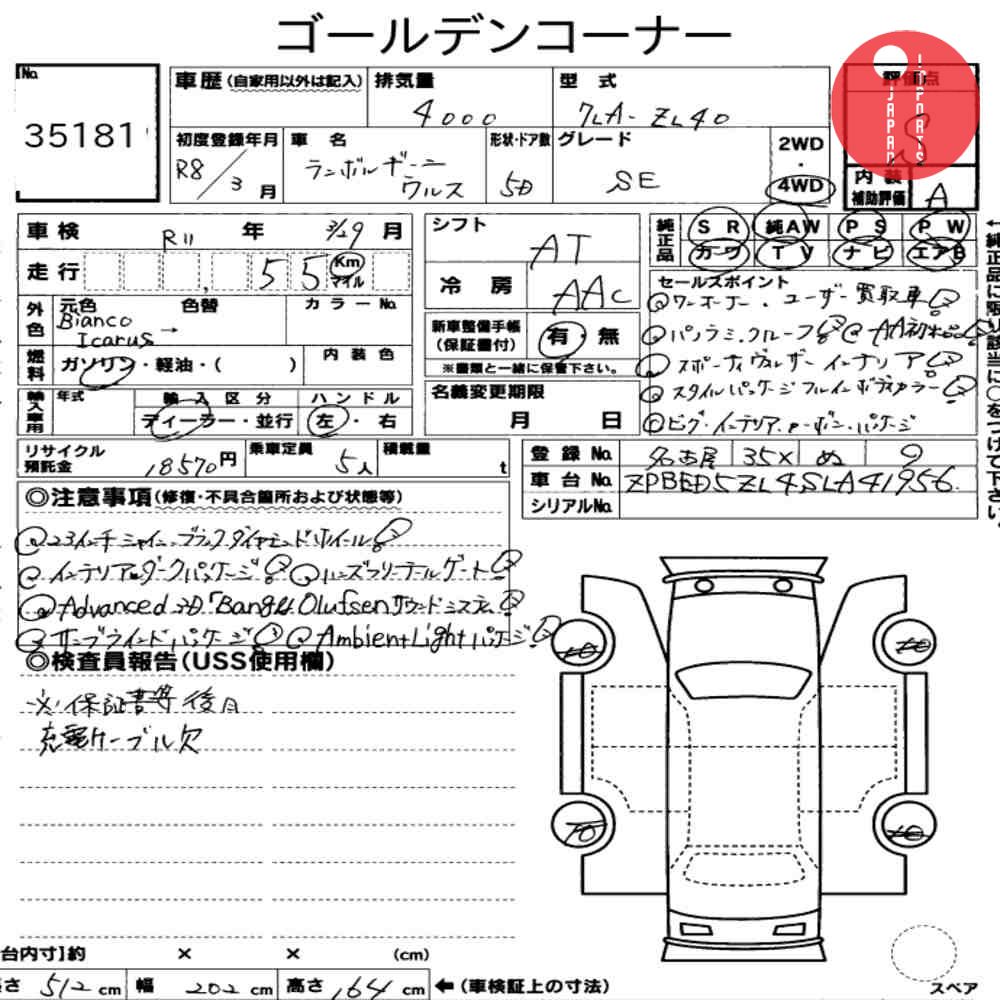 ゴールデンコーナー
No.
35181
車歴(自家用以外は記入)
排気量
4000
型式
7LA-ZL40
評価点
S
JAPAN
IMPORTS
初度登録年月
R8/3月
車名
ランボルギーニ
ウルス
形状・ドア数
5D
グレード
SE
2WD
・
4WD
内装
補助評価
A
車検 R11年 3/29月
走行 55 Km
マイル
シフト
AT
冷房
AAC
純正品
SR 純AW PS PW
カワ TV ナビ エアB
外色
元色 色替 カラーNo.
Bianco
Icarus →
燃料
ガソリン・軽油・( )
内装色
新車整備手帳
(保証書付)
有・無
※書類と一緒に保管下さい。
セールスポイント
ワンオーナー.ユーザー買取車
パノラミックルーフ AA初出品
スポーティヴレザーインテリア
スタイルパッケージフルインボディカラー
ビグ・インテリア・カーボン・パッケージ
←純正品に限り該当に○をつけて下さい。
輸入車用
年式
輸入区分
ディーラー・並行
ハンドル
左・右
名義変更期限
月 日
リサイクル
預託金
18570円
乗車定員
5人
積載量
t
登録No. 名古屋 35X ぬ 9
車台No. ZPBED5ZL4SLA41956
シリアルNo.
◎注意事項(修復・不具合箇所および状態等)
23インチシャイニーブラックダイヤモンドホイール
インテリアダークパッケージ ハンズフリーテールゲート
Advanced 3D "Bang & Olufsen サウンドシステム
サンブラインドパッケージ Ambient Light パッケージ
◎検査員報告(USS使用欄)
※保証書等後日
充電ケーブル欠
台内寸】約 × × (cm)
さ 512 cm 幅 202 cm 高さ 164 cm ←(車検証上の寸法)
スペア